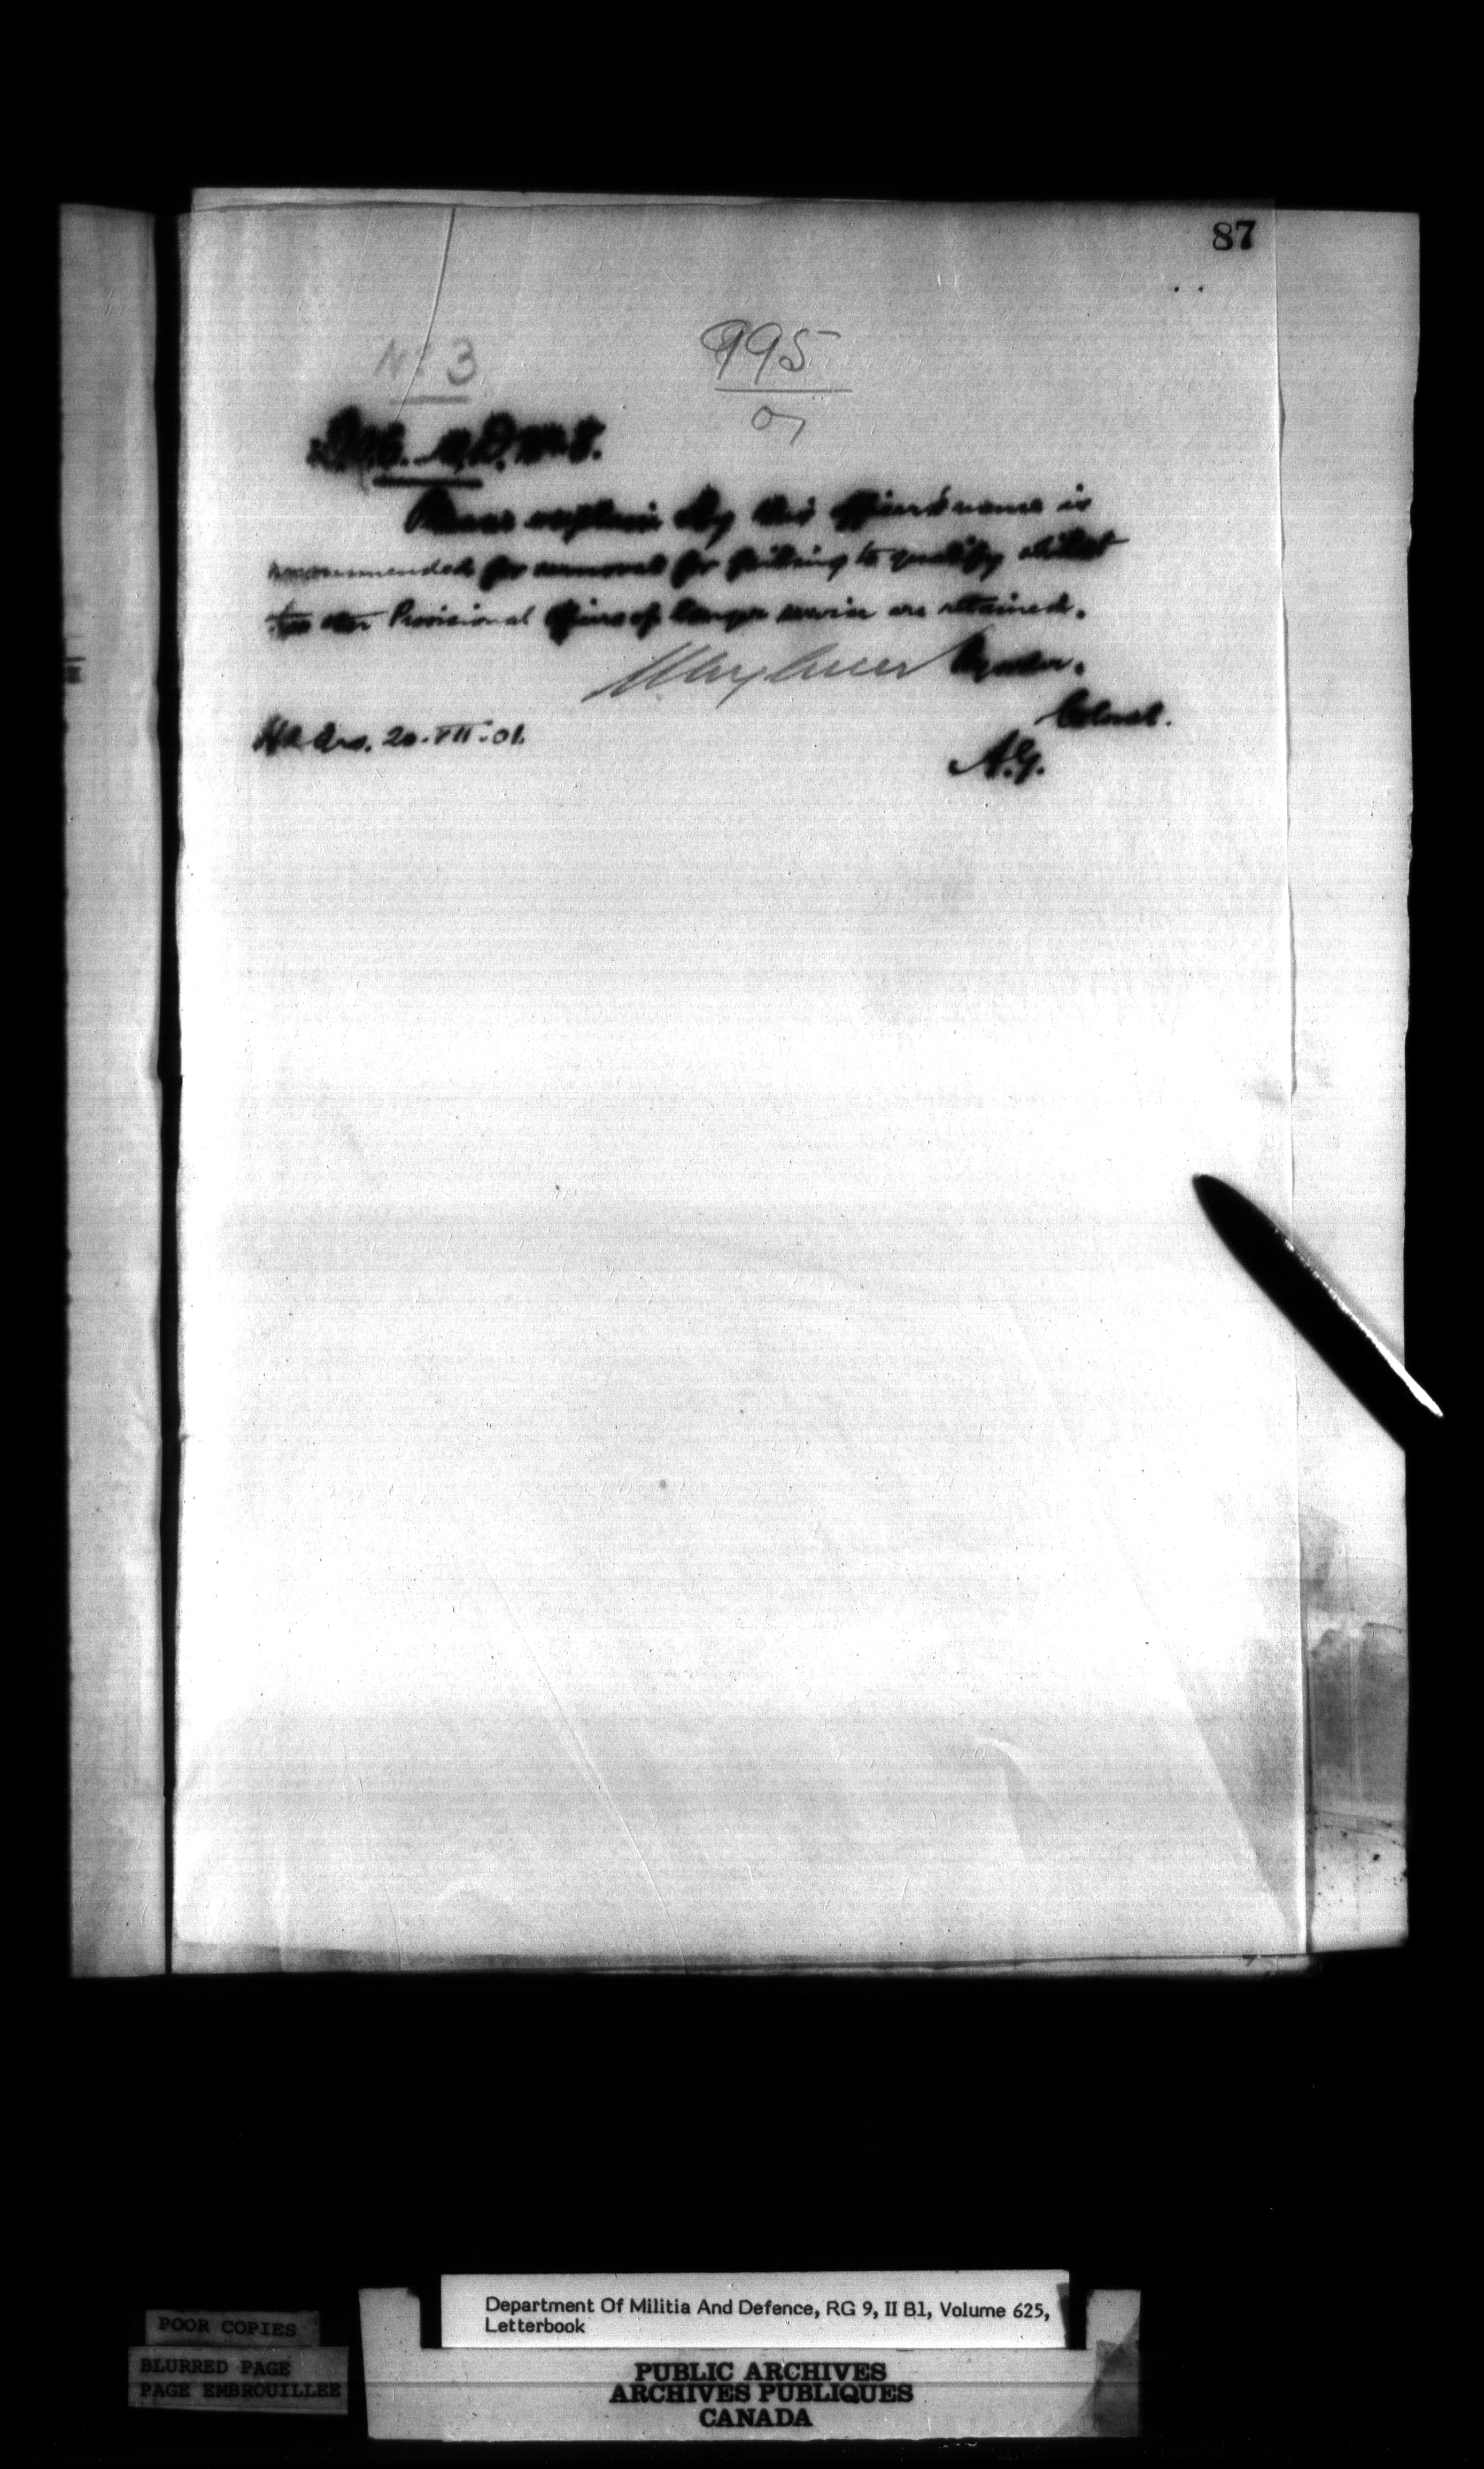 87
No 3
995
01
D.O.C. M.D. No 8.
Please explain why this officer's name is
recommended for removal for failing to qualify whilst
two other Provisional officers of longer service are retained.
Colonel.
Hd Qrs. 20.VII.01.
A.G.
Department Of Militia And Defence, RG 9, II B1, Volume 625,
Letterbook
POOR COPIES
BLURRED PAGE
PAGE EMBROUILLEE
PUBLIC ARCHIVES
ARCHIVES PUBLIQUES
CANADA